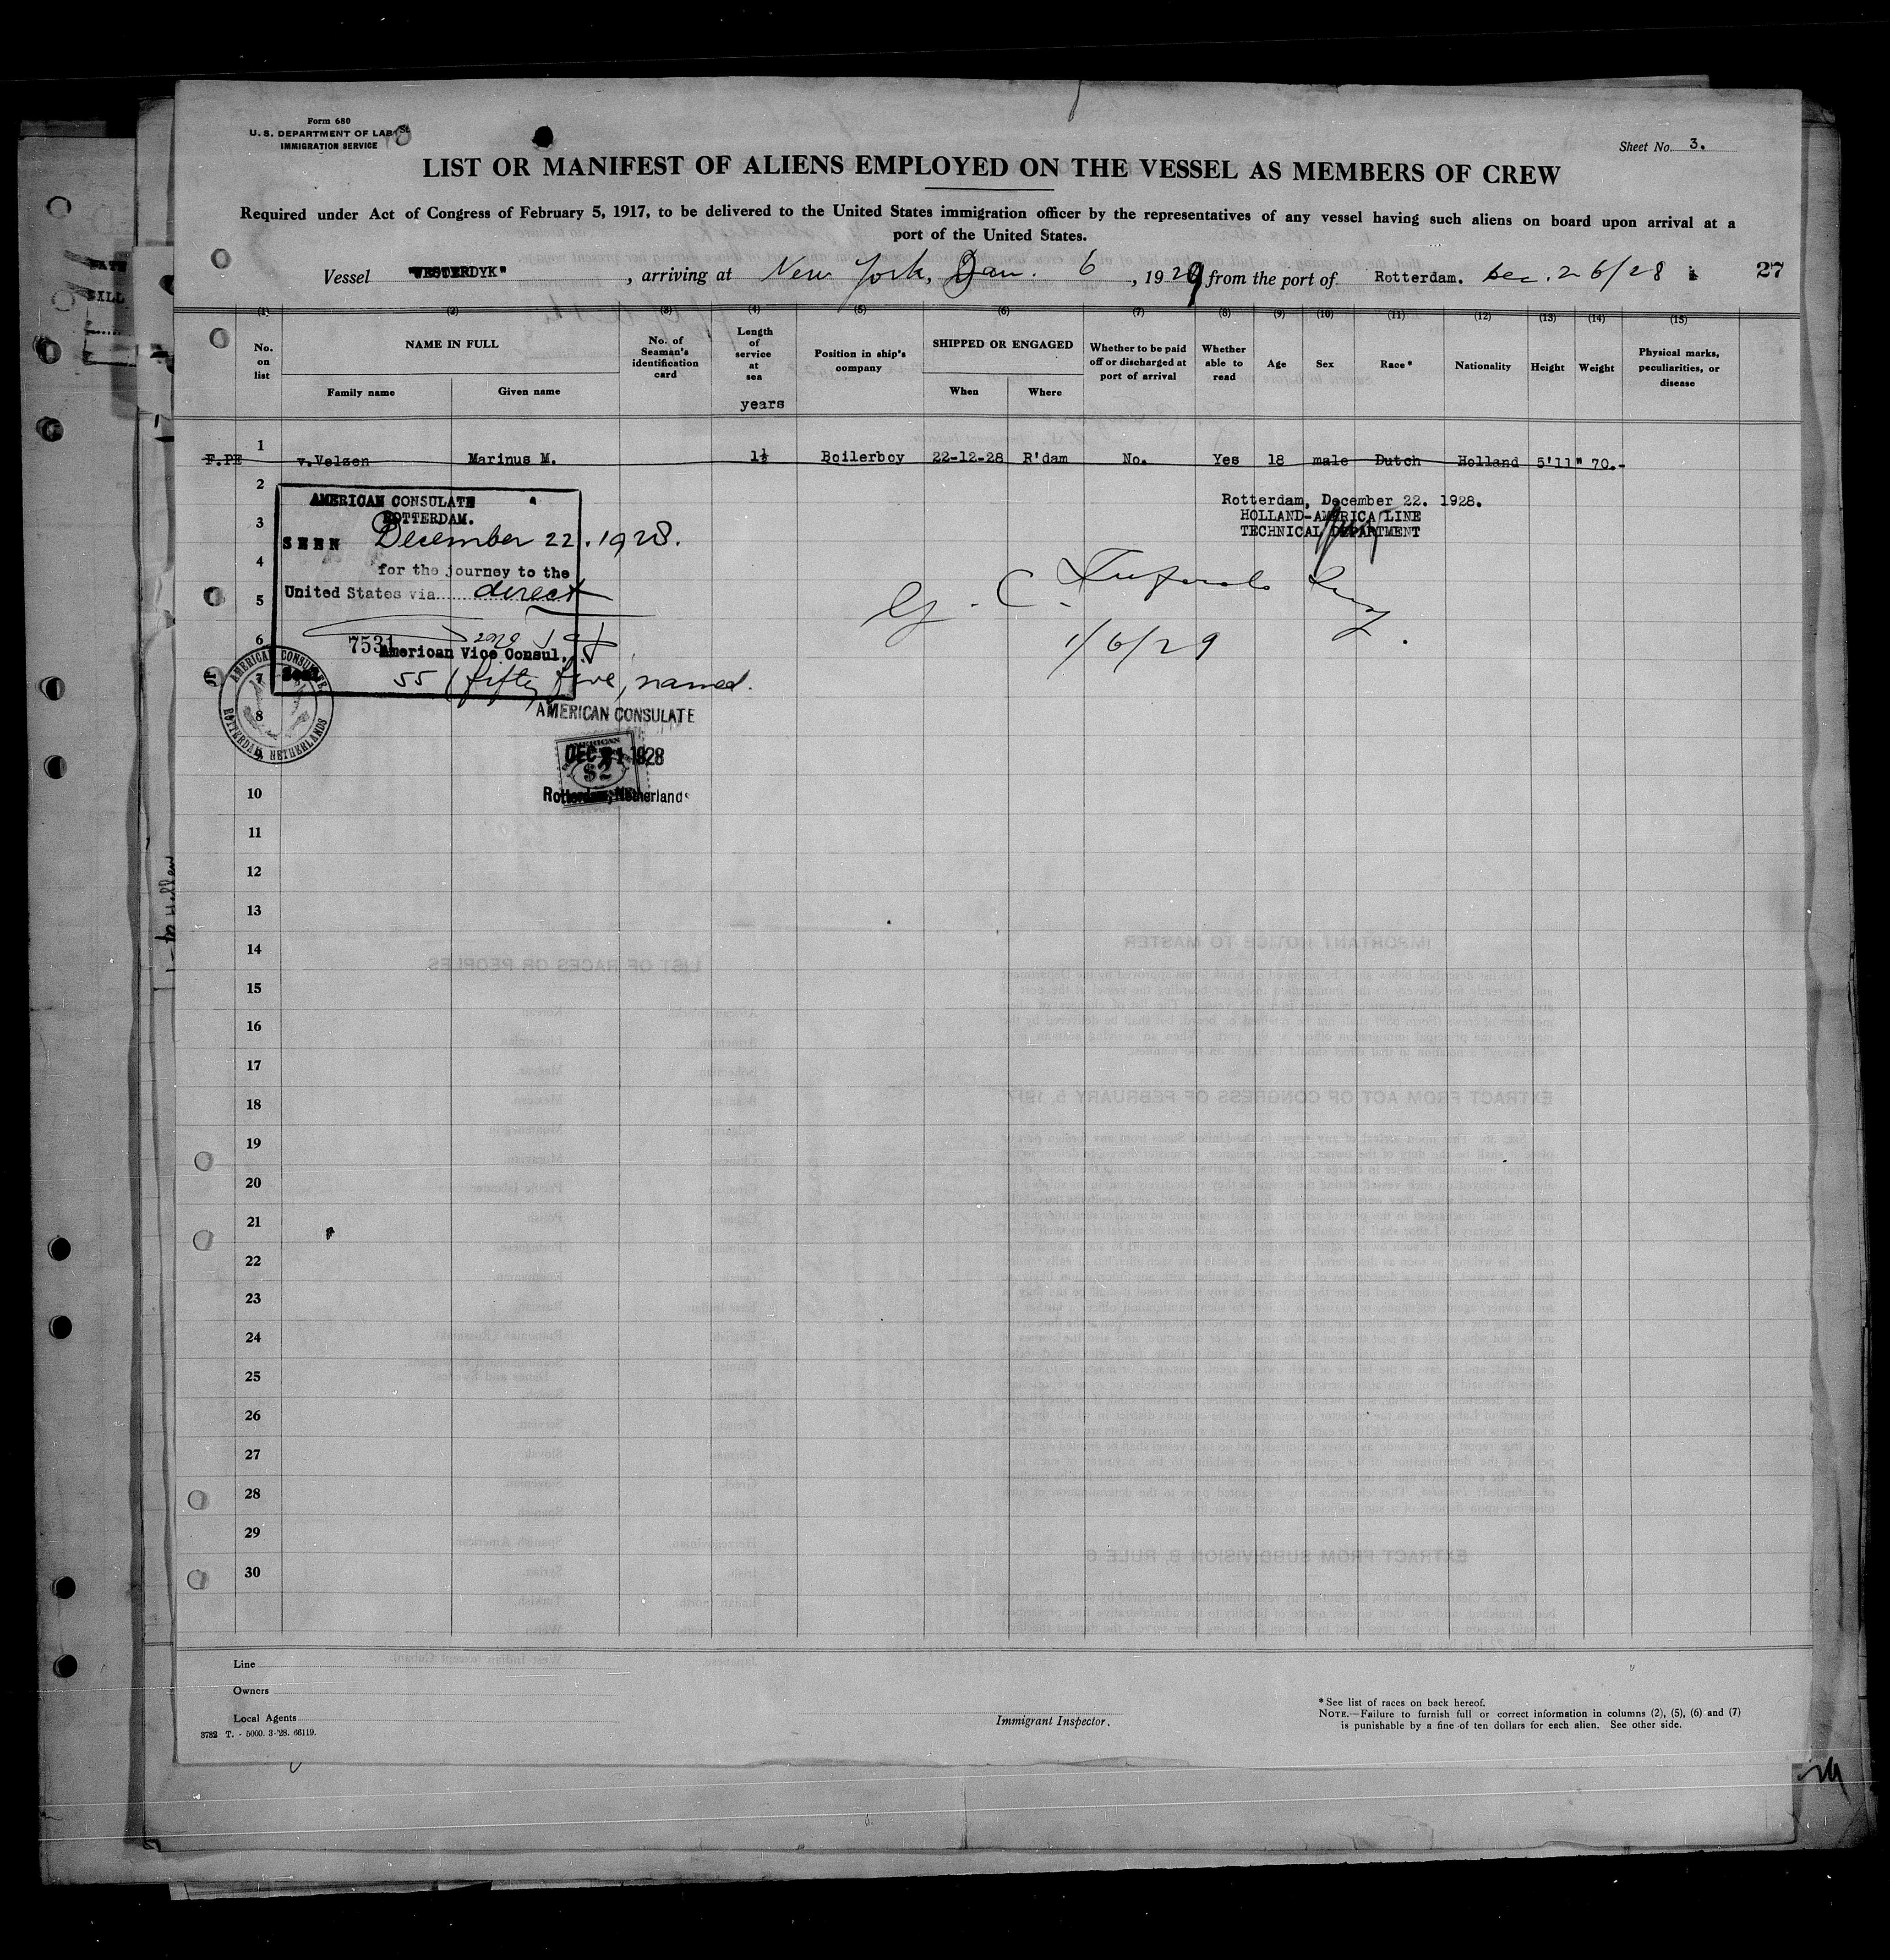 Form 680
U. S. DEPARTMENT OF LABOR
IMMIGRATION SERVICE
Sheet No. 3.
LIST OR MANIFEST OF ALIENS EMPLOYED ON THE VESSEL AS MEMBERS OF CREW
Required under Act of Congress of February 5, 1917, to be delivered to the United States immigration officer by the representatives of any vessel having such aliens on board upon arrival at a
port of the United States.
Vessel "WESTERDYK" , arriving at New York, Jan. 6 , 1929 from the port of Rotterdam. Dec. 26/28 27
(1) (2) (3) (4) (5) (6) (7) (8) (9) (10) (11) (12) (13) (14) (15)
No. on list NAME IN FULL Family name Given name No. of Seaman's identification card Length of service at sea years Position in ship's company SHIPPED OR ENGAGED When Where Whether to be paid off or discharged at port of arrival Whether able to read Age Sex Race* Nationality Height Weight Physical marks, peculiarities, or disease
F.PE 1 v.Velzen Marinus M. 1½ Boilerboy 22-12-28 R'dam No. Yes 18 male Dutch Holland 5'11" 70.-
2
AMERICAN CONSULATE
ROTTERDAM.
Rotterdam, December 22. 1928.
HOLLAND-AMERICA LINE
TECHNICAL DEPARTMENT
3
SEEN December 22. 1928.
4
for the journey to the
5
United States via direct
1/6/29
6
7531
American Vice Consul.
7
Seal
55 (fifty five) named.
AMERICAN CONSULATE ROTTERDAM, NETHERLANDS
8
AMERICAN CONSULATE
DEC 21 1928
$2
Rotterdam, Netherlands
10
11
12
13
14
15
16
17
18
19
20
21
22
23
24
25
26
27
28
29
30
Line
Owners
Local Agents
3782 T. - 5000. 3-'28. 66119.
Immigrant Inspector.
*See list of races on back hereof.
NOTE.—Failure to furnish full or correct information in columns (2), (5), (6) and (7)
is punishable by a fine of ten dollars for each alien. See other side.